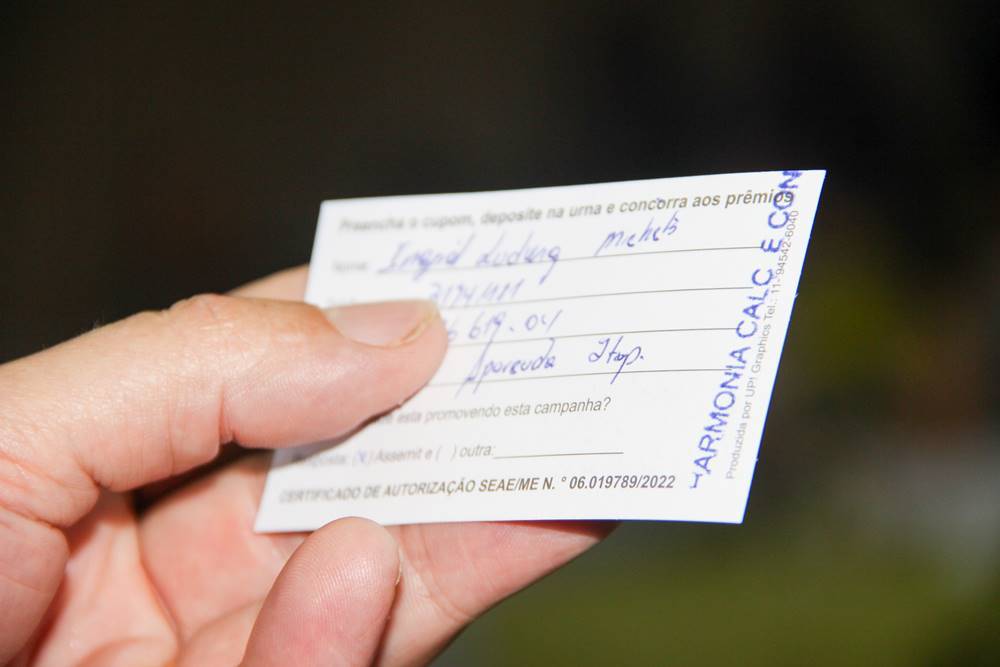 Preencha o cupom, deposite na urna e concorra aos prêmios
Nome: Ingrid Ludwig Michels
3174111
6 619-04
Aparecida Itap.
está promovendo esta campanha?
Resposta: (x) Assemit e ( ) outra:
CERTIFICADO DE AUTORIZAÇÃO SEAE/ME N. ° 06.019789/2022
HARMONIA CALÇ E CON
Produzida por UP! Graphics Tel.: 11- 94542-6040